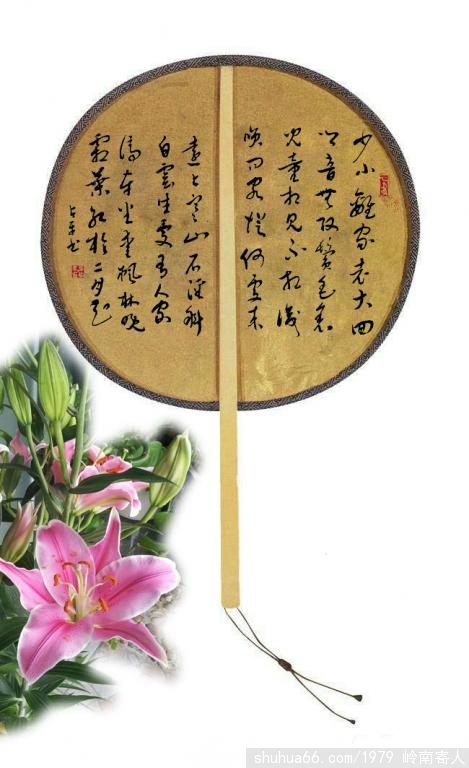 少小離家老大回
鄉音無改鬢毛衰
兒童相見不相識
咲問客從何處来
遠上寒山石徑斜
白雲生處有人家
停車坐愛楓林晚
霜葉紅於二月花
shuhua66.com/1979 岭南寄人